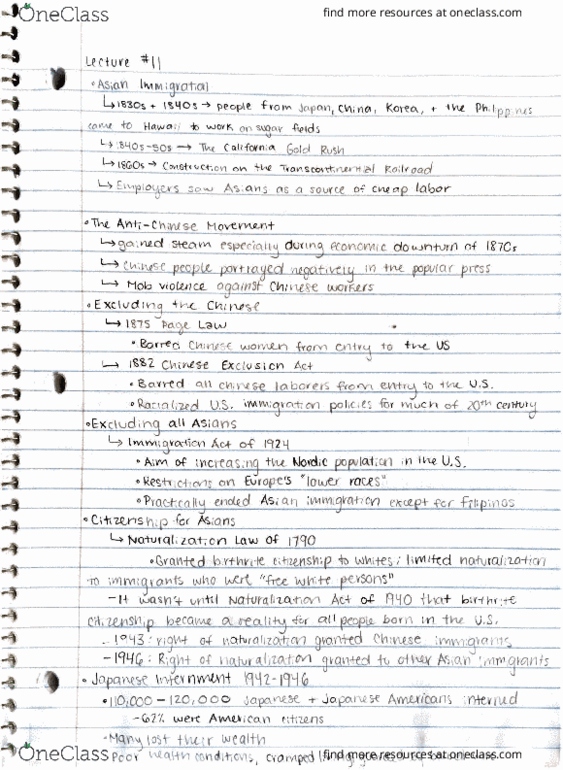 OneClass
find more resources at oneclass.com
Lecture #11
• Asian Immigration
↳ 1830s + 1840s → people from Japan, China, Korea, + the Philippines
came to Hawaii to work on sugar fields
↳ 1840s-50s → The California Gold Rush
↳ 1860s → Construction on the Transcontinental Railroad
↳ Employers saw Asians as a source of cheap labor
• The Anti-Chinese Movement
↳ gained steam especially during economic downturn of 1870s
↳ Chinese people portrayed negatively in the popular press
↳ Mob violence against Chinese workers
• Excluding the Chinese
↳ 1875 Page Law
• Barred Chinese women from entry to the US
↳ 1882 Chinese Exclusion Act
• Barred all chinese laborers from entry to the U.S.
• Racialized U.S. immigration policies for much of 20th century
• Excluding all Asians
↳ Immigration Act of 1924
• Aim of increasing the Nordic population in the U.S.
• Restrictions on Europe's "lower races"
• Practically ended Asian immigration except for Filipinos
• Citizenship for Asians
↳ Naturalization Law of 1790
• Granted birthrite citizenship to whites; limited naturalization
to immigrants who were "free white persons"
- It wasn't until Naturalization Act of 1940 that birthrite
citizenship became a reality for all people born in the U.S.
- 1943: right of naturalization granted Chinese immigrants
- 1946: Right of naturalization granted to other Asian immigrants
• Japanese Internment 1942-1946
• 110,000 - 120,000 Japanese + Japanese Americans interned
- 62% were American citizens
- Many lost their wealth
Poor health conditions, cramped
OneClass
find more resources at oneclass.com